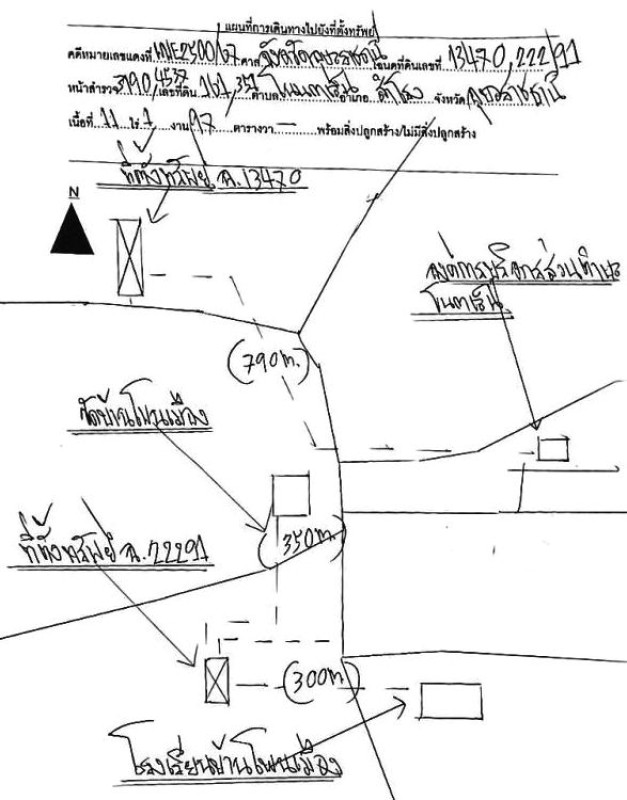 แผนที่การเดินทางไปยังที่ตั้งทรัพย์
คดีหมายเลขแดงที่ ผบE2500/67 ศาล จังหวัดอุบลราชธานี โฉนดที่ดินเลขที่ 13470, 22291
หน้าสำรวจ 3190, 4537 เลขที่ดิน 161, 357 ตำบล โนนกาเร็น อำเภอ สำโรง จังหวัด อุบลราชธานี
เนื้อที่ 11 ไร่ 1 งาน 97 ตารางวา — พร้อมสิ่งปลูกสร้าง/ไม่มีสิ่งปลูกสร้าง
ที่ตั้งทรัพย์ ฉ.13470
N
องค์การบริหารส่วนตำบล
โนนกาเร็น
(790m.)
วัดบ้านโพนเมือง
(350m.)
ที่ตั้งทรัพย์ ฉ.22291
(300m.)
โรงเรียนบ้านโพนเมือง